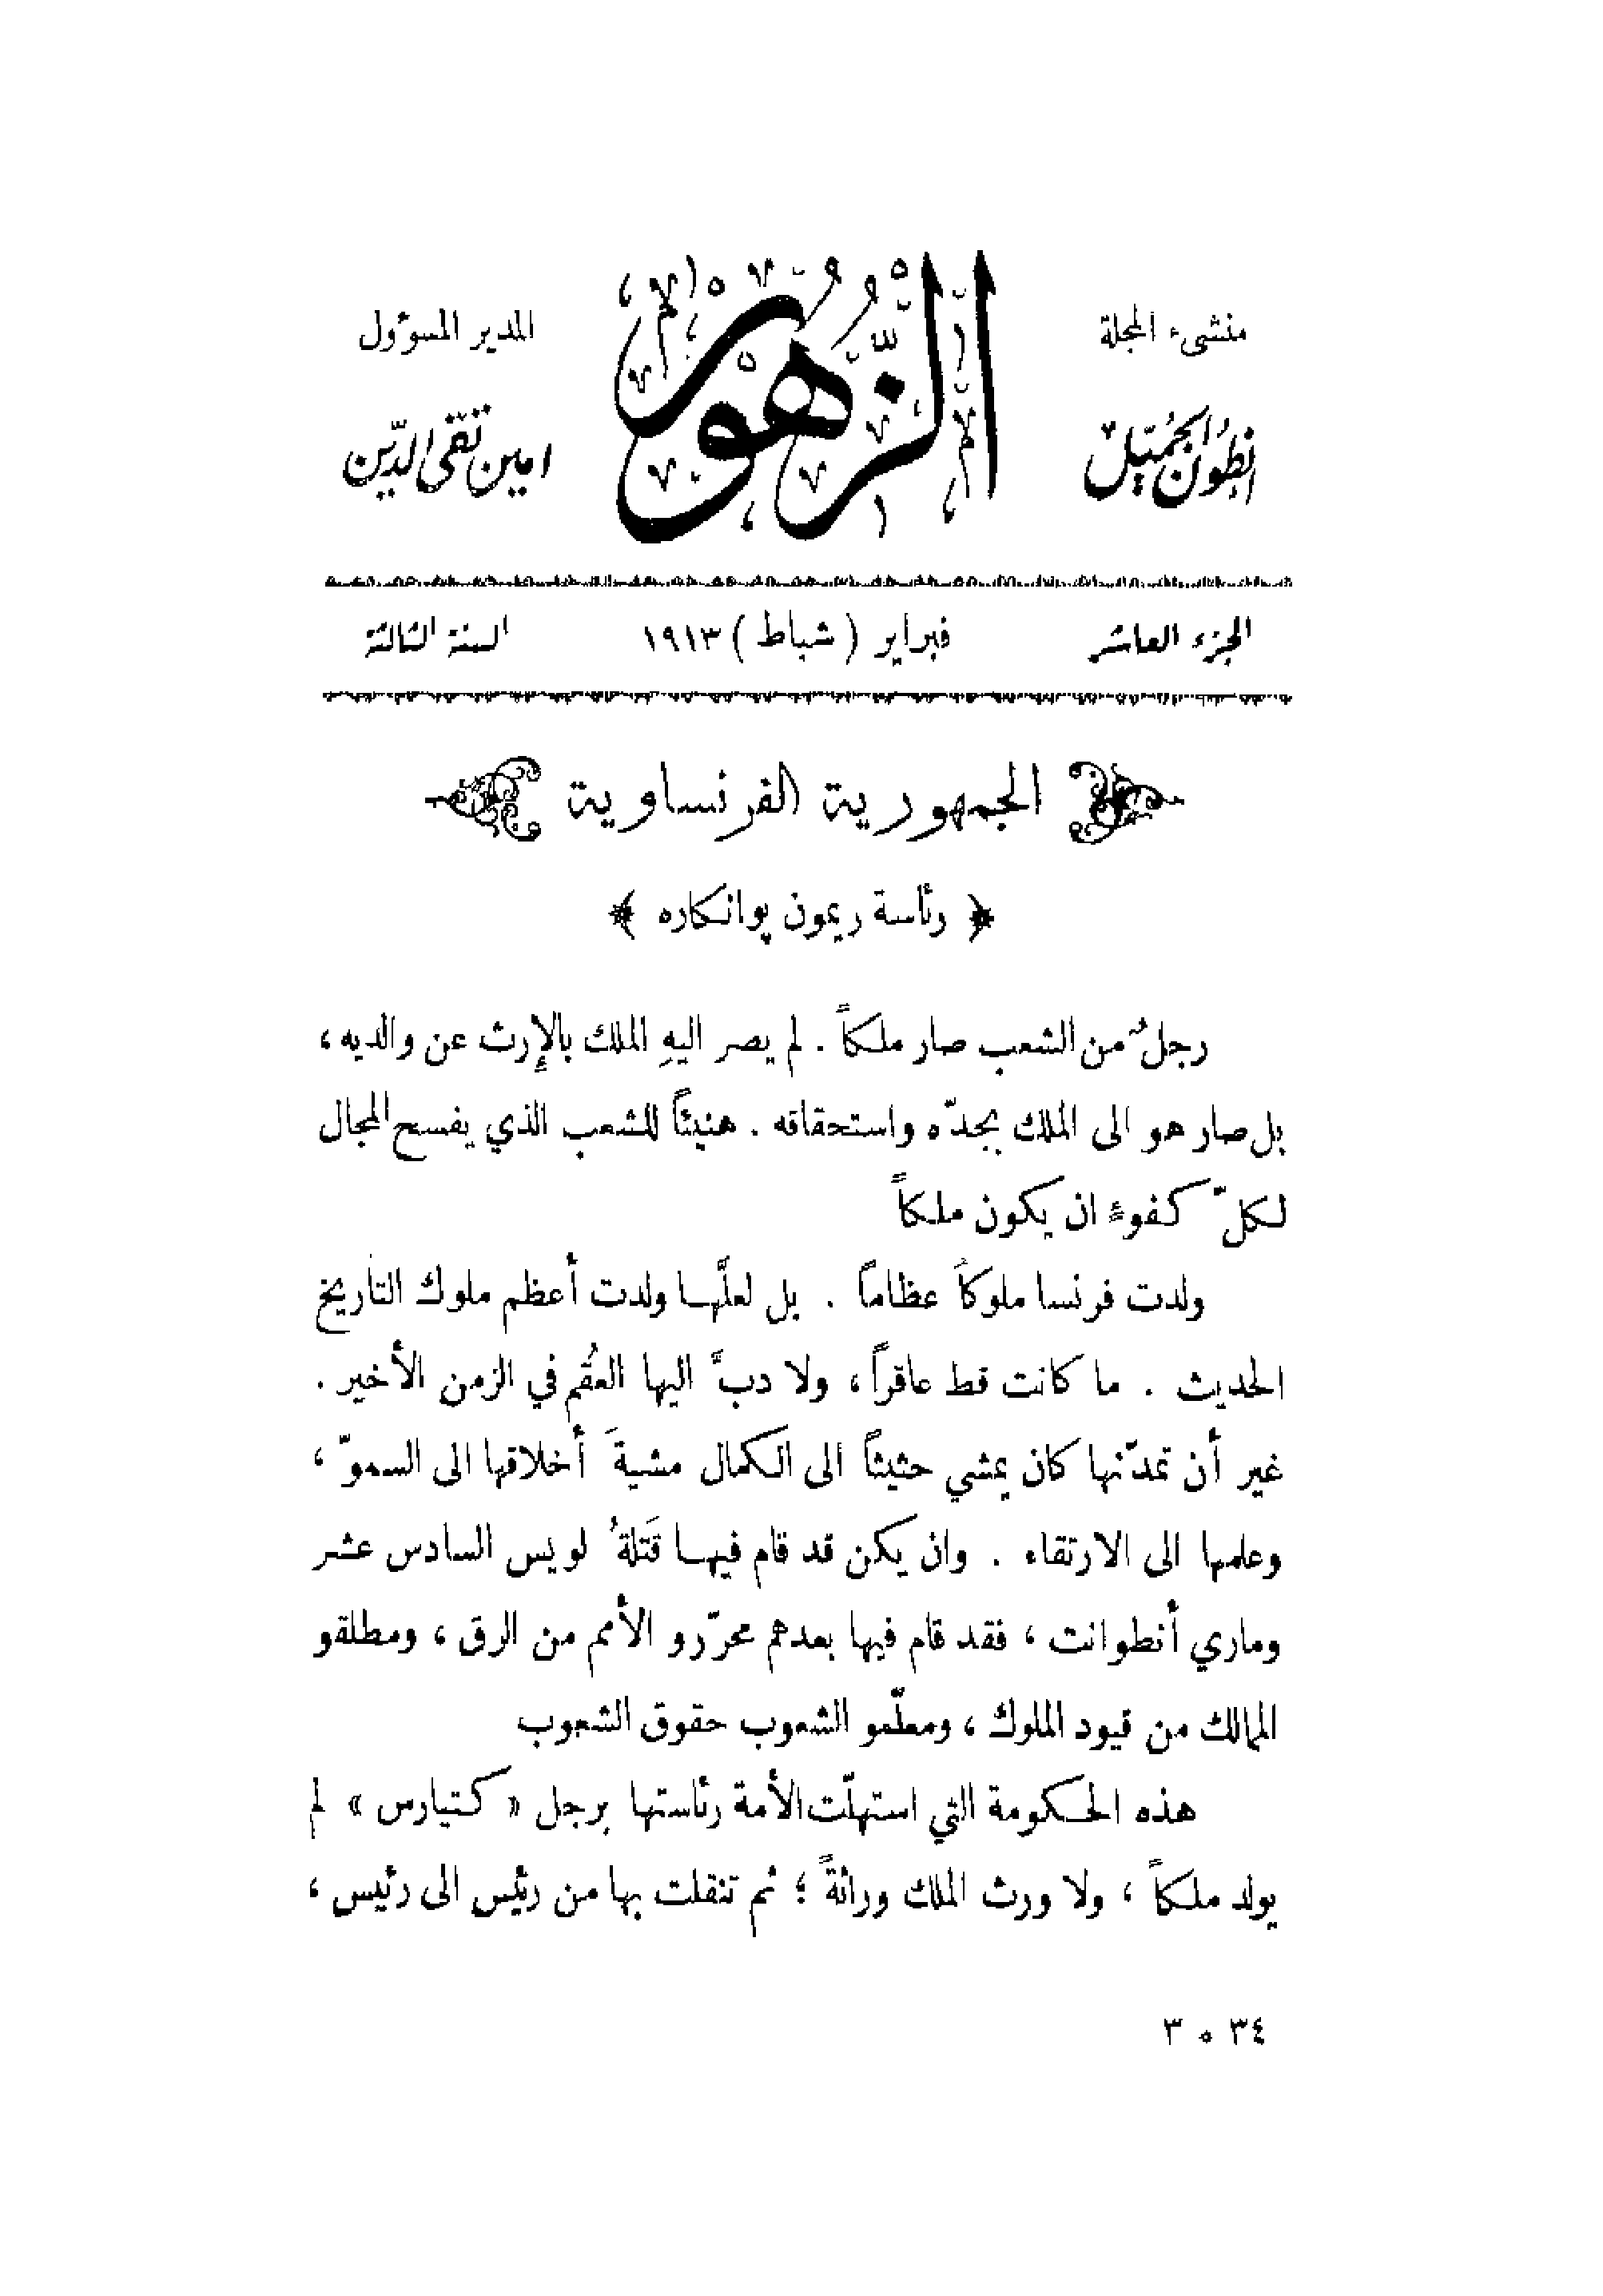 منشىء المجلة
انطون الجميّل
الزهور
المدير المسؤول
امين تقي الدين
الجزء العاشر
فبراير ( شباط ) ١٩١٣
السنة الثالثة
الجمهورية الفرنساوية
﴿ رئاسة ريمون پوانكاره ﴾
رجلٌ من الشعب صار ملكاً . لم يصر اليهِ الملك بالإرث عن والديه ،
بل صار هو الى الملك بجدّه واستحقاقه . هنيئاً للشعب الذي يفسح المجال
لكلّ كفوءٍ ان يكون ملكاً
ولدت فرنسا ملوكاً عظاماً . بل لعلَّها ولدت أعظم ملوك التاريخ
الحديث . ما كانت قط عاقراً ، ولا دبَّ اليها العُقم في الزمن الأخير .
غير أن تمدّنها كان يمشي حثيثاً الى الكمال مشيةَ أخلاقها الى السموّ ،
وعلمها الى الارتقاء . وان يكن قد قام فيها قَتلةُ لويس السادس عشر
وماري أنطوانت ، فقد قام فيها بعدهم محرّرو الأمم من الرق ، ومطلقو
الممالك من قيود الملوك ، ومعلّمو الشعوب حقوق الشعوب
هذه الحكومة التي استهلّت الأمة رئاستها برجل « كتيارس » لم
يولد ملكاً ، ولا ورث الملك وراثةً ؛ ثم تنقلت بها من رئيس الى رئيس ،
٣٤ ٥ ٣